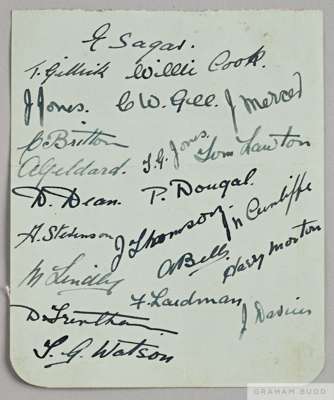 E Sagar.
T. Gillick Willie Cook.
J Jones. C W. Gee. J Mercer
C Britton
A Geldard. T. G. Jones. Tom Lawton
D. Dean. P. Dougal.
J N Cunliffe
H. Stevenson J Thomson. Harry Morton
M Lindley A Bell
D. Trentham F. Laidman J Davies
T. G. Watson
GRAHAM BUDD